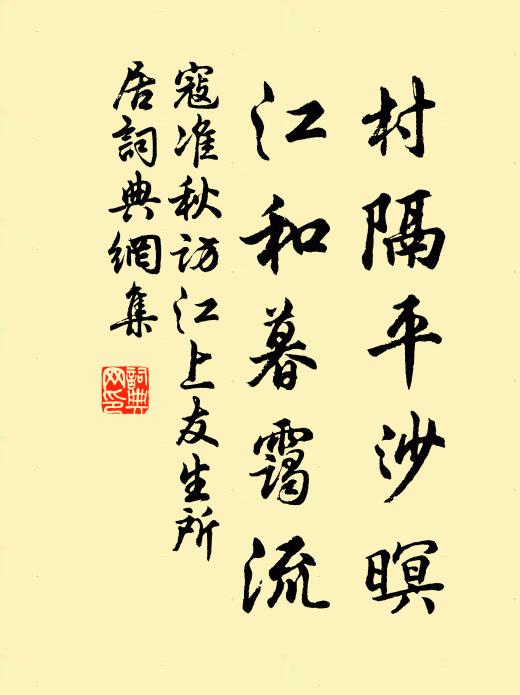 村隔平沙暝
江和暮靄流
寇准秋访江上友生所
居詞典網集
詞典
网印